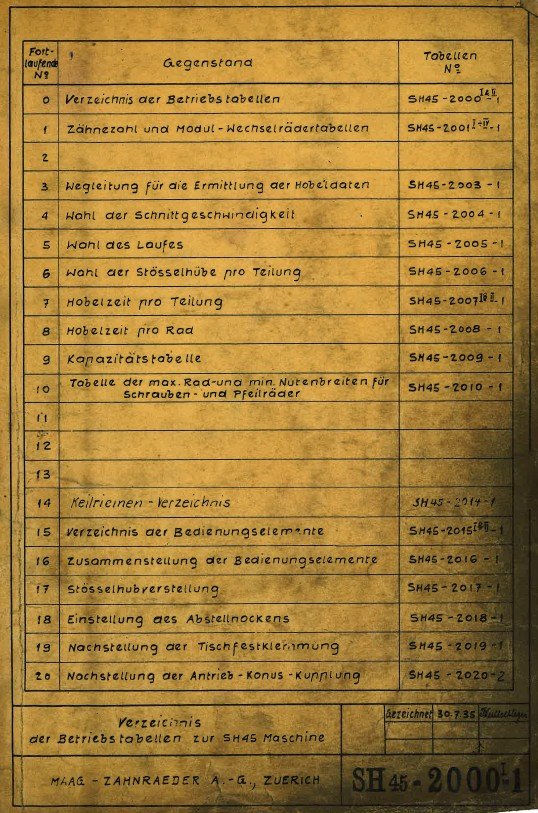 Fort-
laufende
Nº
Gegenstand
Tabellen
Nº
0 Verzeichnis der Betriebstabellen SH45-2000 I&II-1
1 Zähnezahl und Modul-Wechselrädertabellen SH45-2001 I÷IV-1
2
3 Wegleitung für die Ermittlung der Hobeldaten SH45-2003-1
4 Wahl der Schnittgeschwindigkeit SH45-2004-1
5 Wahl des Laufes SH45-2005-1
6 Wahl der Stösselhübe pro Teilung SH45-2006-1
7 Hobelzeit pro Teilung SH45-2007 I&II-1
8 Hobelzeit pro Rad SH45-2008-1
9 Kapazitätstabelle SH45-2009-1
10 Tabelle der max. Rad-und min. Nutenbreiten für
Schrauben- und Pfeilräder SH45-2010-1
11
12
13
14 Keilriemen-Verzeichnis SH45-2014-1
15 Verzeichnis der Bedienungselemente SH45-2015 I&II-1
16 Zusammenstellung der Bedienungselemente SH45-2016-1
17 Stösselhubverstellung SH45-2017-1
18 Einstellung des Abstellnockens SH45-2018-1
19 Nachstellung der Tischfestklemmung SH45-2019-1
20 Nachstellung der Antrieb-Konus-Kupplung SH45-2020-2
Verzeichnis
der Betriebstabellen zur SH45 Maschine
Gezeichnet 30.7.35
MAAG-ZAHNRAEDER A.-G., ZUERICH
SH45-2000 I-1